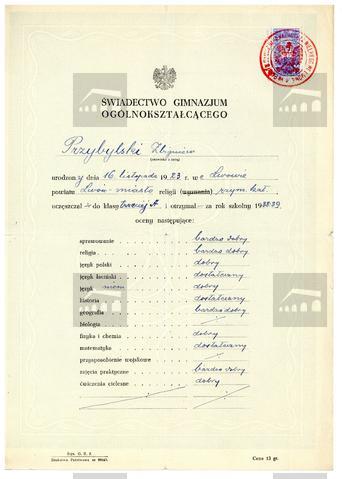 ŚWIADECTWO GIMNAZJUM
OGÓLNOKSZTAŁCĄCEGO
Przybylski Zbigniew
(nazwisko i imię)
urodzony dnia 16 listopada 1923 w e Lwowie
powiatu Lwów-miasto religii (wyznania) rzym. kat.
uczęszczał — do klasy trzeciej A i otrzymał — za rok szkolny 1938/39
oceny następujące:
sprawowanie bardzo dobry
religia bardzo dobry
język polski dobry
język łaciński dostateczny
język niem. dobry
historia dostateczny
geografia bardzo dobry
biologia
fizyka i chemia dobry
matematyka dostateczny
przysposobienie wojskowe
zajęcia praktyczne bardzo dobry
ćwiczenia cielesne dobry
Cena 13 gr.